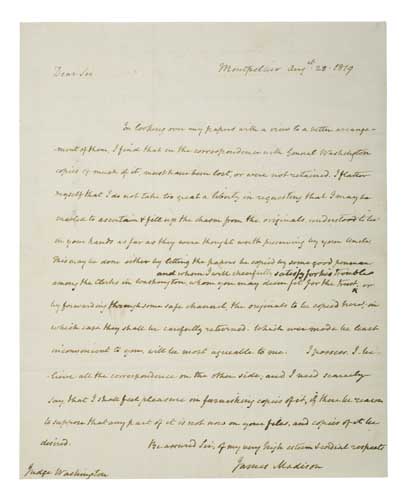 Montpelier Augst 28. 1819
Dear Sir
In looking over my papers with a view to a better arrange-
ment of them, I find that in the correspondence with General Washington
copies of much of it, must have been lost, or were not retained. I flatter
myself that I do not take too great a liberty in requesting that I may be
enabled to ascertain & fill up the chasm from the originals, understood to be
in your hands as far as they were thought worth preserving by your Uncle.
This may be done either by letting the papers be copied by some good penman
and whom I will chearfully satisfy for his trouble
among the Clerks in Washington whom you may deem fit for the trust, or
by forwarding through some safe channel, the originals to be copied here; in
which case they shall be carefully returned. Which ever mode be least
inconvenient to you, will be most agreeable to me. I possess, I be-
lieve all the correspondence on the other side, and I need scarcely
say, that I shall feel pleasure in furnishing copies of it, if there be reason
to suppose that any part of it is not now on your files, and copies of it be
desired.
Be assured Sir, of my very high esteem & cordial respects
James Madison
Judge Washington